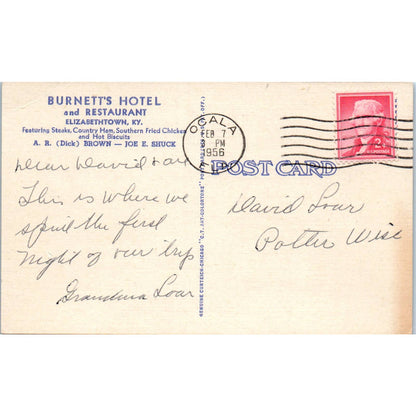 BURNETT'S HOTEL
and RESTAURANT
ELIZABETHTOWN, KY.
Featuring Steaks, Country Ham, Southern Fried Chicken
and Hot Biscuits
A. R. (Dick) BROWN — JOE E. SHUCK
Dear David + all
This is where we
spent the first
night of our trip
Grandma Loar
GENUINE CURTEICH-CHICAGO "C.T. ART-COLORTONE" POST CARD
OCALA
FEB 7
PM
1956
2¢
POST CARD
David Loar
Potter Wisc